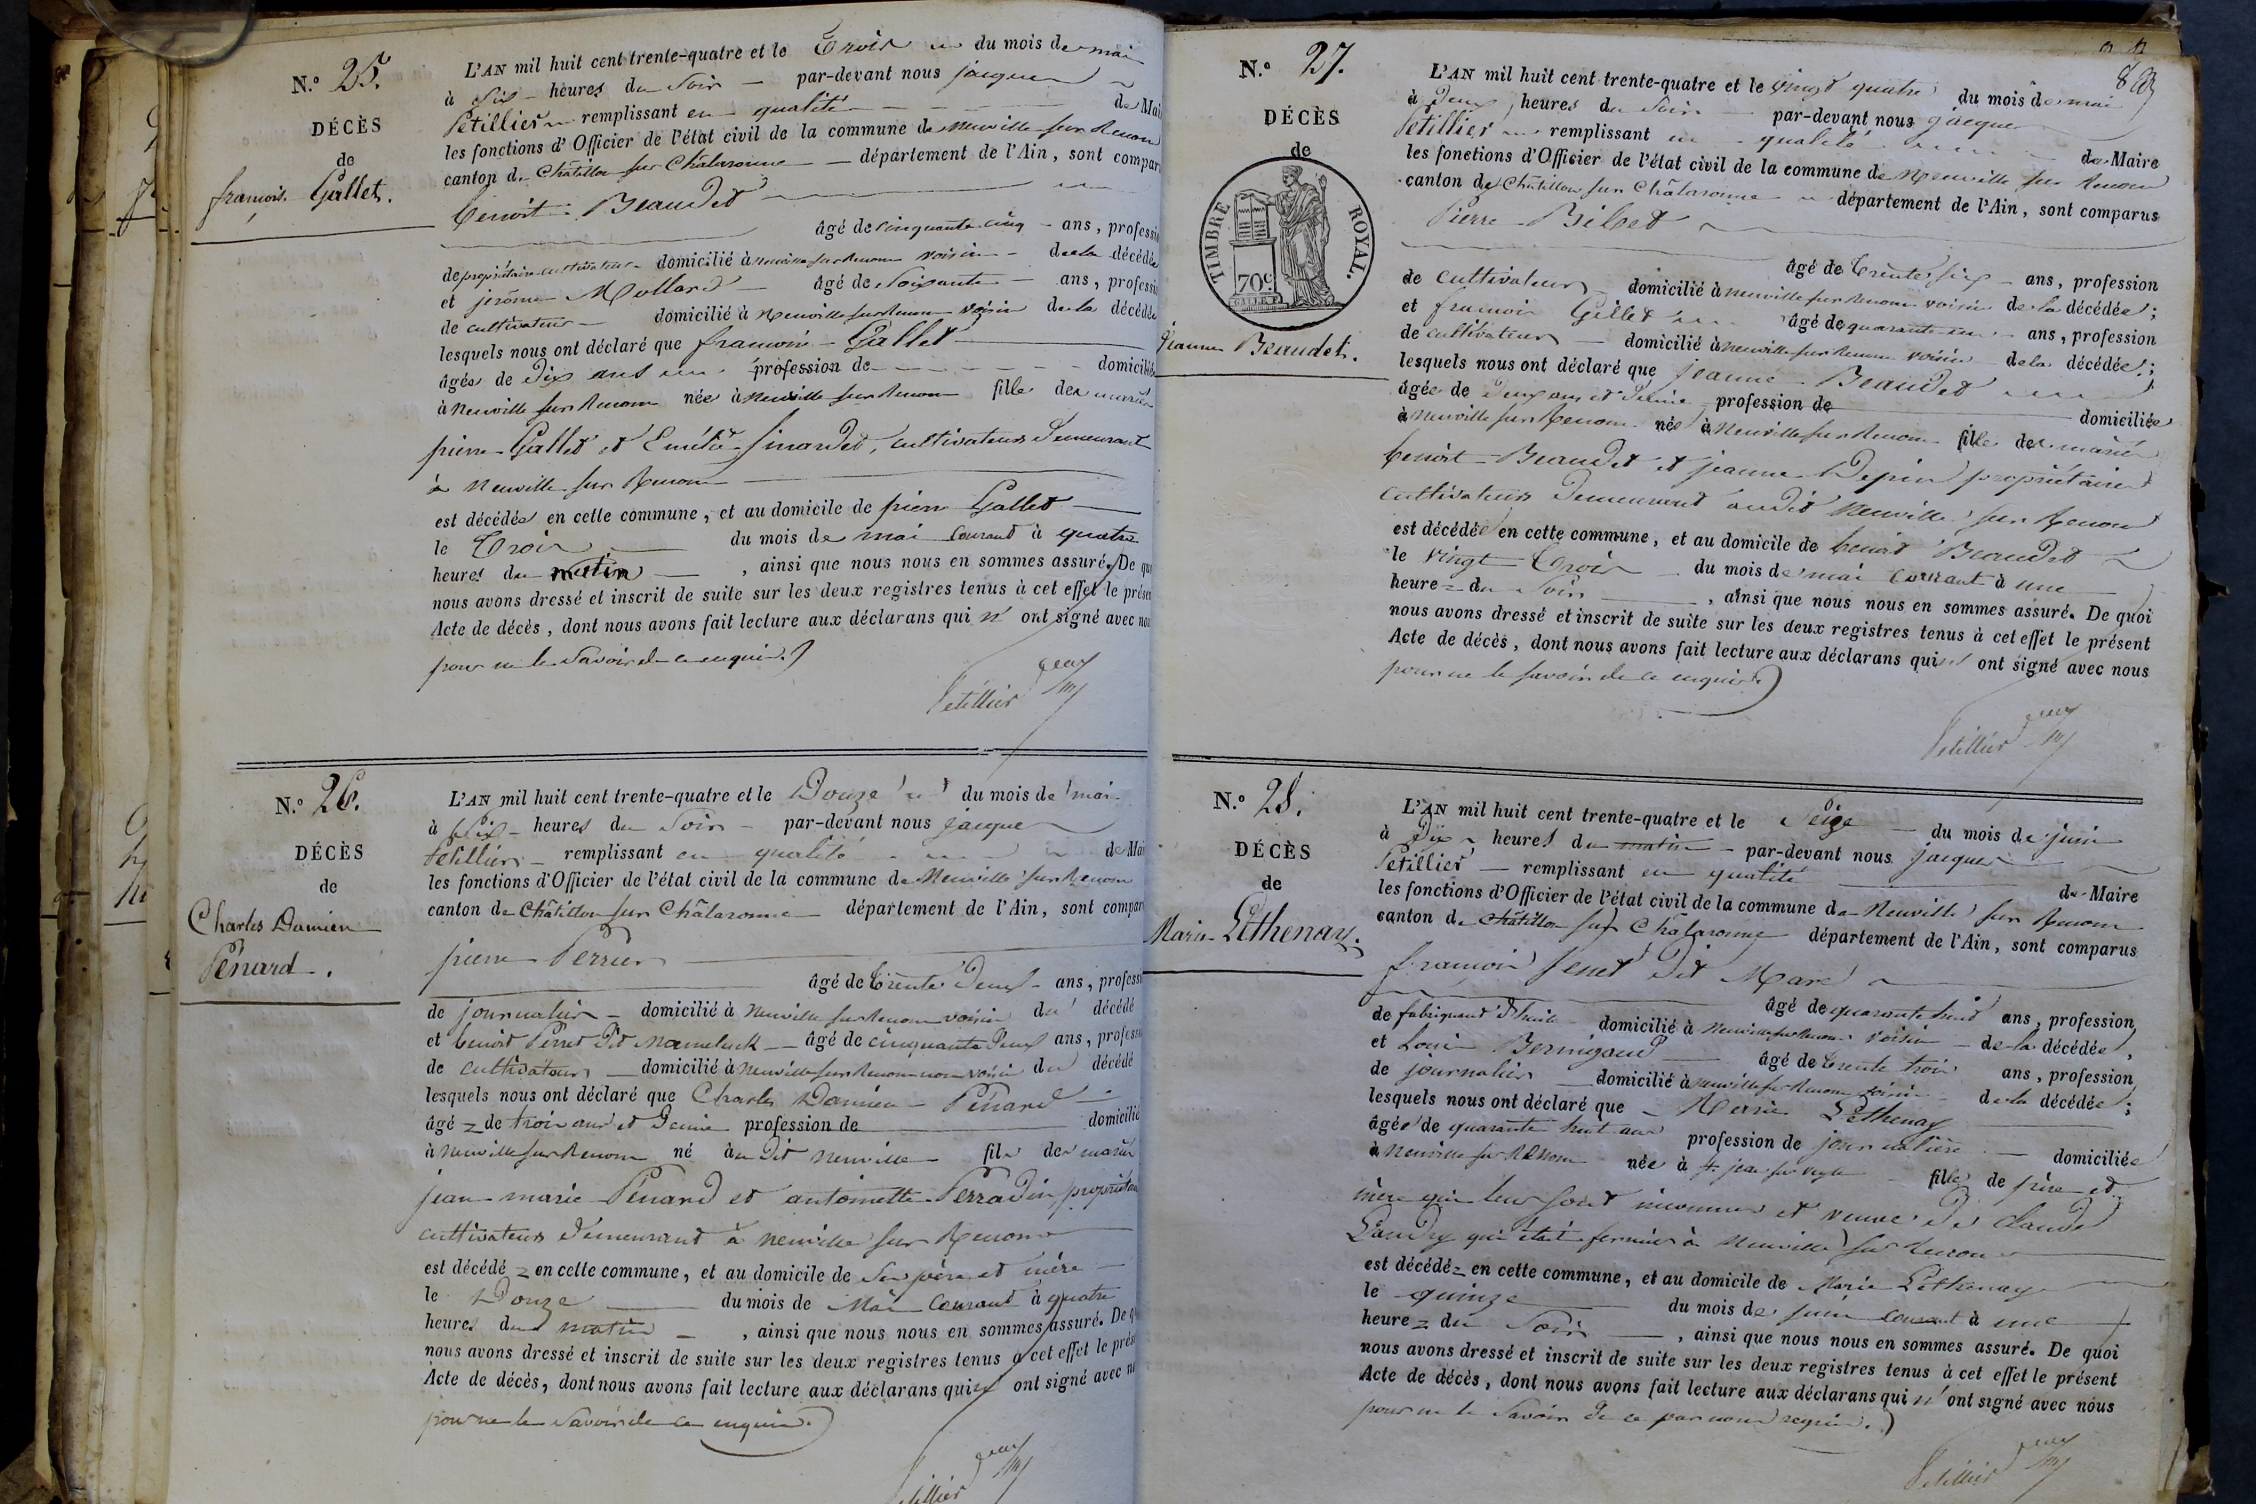 N.° 25.
DÉCÈS
de
françois Gallet.
L'AN mil huit cent trente-quatre et le Trois du mois de mai
à Six heures du Soir par-devant nous jacques
Petillier remplissant en qualité de Mai
les fonctions d'Officier de l'état civil de la commune de Neuville sur Renom
canton de Châtillon sur Châlaronne département de l'Ain, sont compar
benoit Beaudet
âgé de cinquante cinq ans, professio
de propriétaire cultivateur domicilié à neuville sur Renom voisin de la décédée
et jerôme Mollard âgé de Soixante ans, professio
de cultivateur domicilié à Neuville sur Renom voisin de la décédée
lesquels nous ont déclaré que françoise Gallet
âgée de dix ans profession de domiciliée
à Neuville sur Renom née à Neuville sur Renom fille des mariés
pierre Gallet et Emélie Sinardet, cultivateurs demeurant
à Neuville sur Renom
est décédée en cette commune, et au domicile de pierre Gallet
le Trois du mois de mai courant à quatre
heures du matin, ainsi que nous nous en sommes assuré. De qu
nous avons dressé et inscrit de suite sur les deux registres tenus à cet effet le prése
Acte de décès, dont nous avons fait lecture aux déclarans qui n'ont signé avec nou
pour ne le Savoir de ce enquis.
Petillier
N.° 26.
DÉCÈS
de
Charles Damien
Penard.
L'AN mil huit cent trente-quatre et le Douze du mois de mai
à Six heures du Soir par-devant nous jacques
Petillier remplissant en qualité de Mai
les fonctions d'Officier de l'état civil de la commune de Neuville sur Renom
canton de Châtillon sur Châlaronne département de l'Ain, sont compar
pierre Perrier
âgé de trente deux ans, profess
de journalier domicilié à Neuville sur Renom voisin du décédé
et benoit Perret dit Mameluck âgé de cinquante deux ans, profess
de cultivateur domicilié à Neuville sur Renom non voisin du décédé
lesquels nous ont déclaré que Charles Damien Penard
âgé de trois ans et demie profession de domicilié
à Neuville sur Renom né au dit neuville fils des mariés
jean marie Penard et antoinette Perradin, propriétaires
cultivateurs demeurant à neuville sur Renom
est décédé en cette commune, et au domicile de Ses père et mère
le Douze du mois de Mai courant à quatre
heures du matin, ainsi que nous nous en sommes assuré. De q
nous avons dressé et inscrit de suite sur les deux registres tenus à cet effet le prés
Acte de décès, dont nous avons fait lecture aux déclarans qui n' ont signé avec n
pour ne le Savoir de ce enquis.
Petillier
N.° 27.
DÉCÈS
de
TIMBRE ROYAL.
70c
Jeanne Beaudet.
L'AN mil huit cent trente-quatre et le vingt quatre du mois de mai
à Deux heures du Soir par-devant nous jacques
Petillier remplissant en qualité de Maire
les fonctions d'Officier de l'état civil de la commune de Neuville sur Renom
canton de Châtillon sur Châlaronne département de l'Ain, sont comparus
Pierre Bibet
âgé de trente six ans, profession
de cultivateur domicilié à neuville sur Renom voisin de la décédée;
et francois Gillet âgé de quarante ans, profession
de cultivateur domicilié à neuville sur Renom voisin de la décédée;
lesquels nous ont déclaré que jeanne Beaudet
âgée de Deux ans et demie, profession de domiciliée
à Neuville sur Renom née à Neuville sur Renom fille des mariés
benoit Beaudet et jeanne Depin propriétaires
cultivateurs demeurant audit Neuville sur Renom
est décédée en cette commune, et au domicile de benoit Beaudet
le vingt Trois du mois de mai courant à une
heure du Soir, ainsi que nous nous en sommes assuré. De quoi
nous avons dressé et inscrit de suite sur les deux registres tenus à cet effet le présent
Acte de décès, dont nous avons fait lecture aux déclarans qui n' ont signé avec nous
pour ne le savoir de ce enquis.
Petillier
N.° 28.
DÉCÈS
de
Marie Léthenay.
L'AN mil huit cent trente-quatre et le Seize du mois de juin
à Dix heures du matin par-devant nous jacques
Petillier remplissant en qualité de Maire
les fonctions d'Officier de l'état civil de la commune de Neuville sur Renom
canton de Châtillon sur Châlaronne département de l'Ain, sont comparus
françois Jenet dit Marc
âgé de quarante huit ans, profession
de fabriquant d'huile domicilié à neuville sur Renom voisin de la décédée,
et Louis Bernigaud âgé de trente trois ans, profession
de journalier domicilié à neuville sur Renom voisin de la décédée;
lesquels nous ont déclaré que Marie Léthenay
âgée de quarante huit ans profession de journalière domiciliée
à Neuville sur Renom née à St jean sur veyle fille de père et
mère qui leur sont inconnus et veuve de claude
Landry qui était fermier à Neuville sur Renom
est décédée en cette commune, et au domicile de Marie Léthenay
le quinze du mois de juin courant à une
heure du Soir, ainsi que nous nous en sommes assuré. De quoi
nous avons dressé et inscrit de suite sur les deux registres tenus à cet effet le présent
Acte de décès, dont nous avons fait lecture aux déclarans qui n' ont signé avec nous
pour ne le Savoir de ce par nous requis.
Petillier